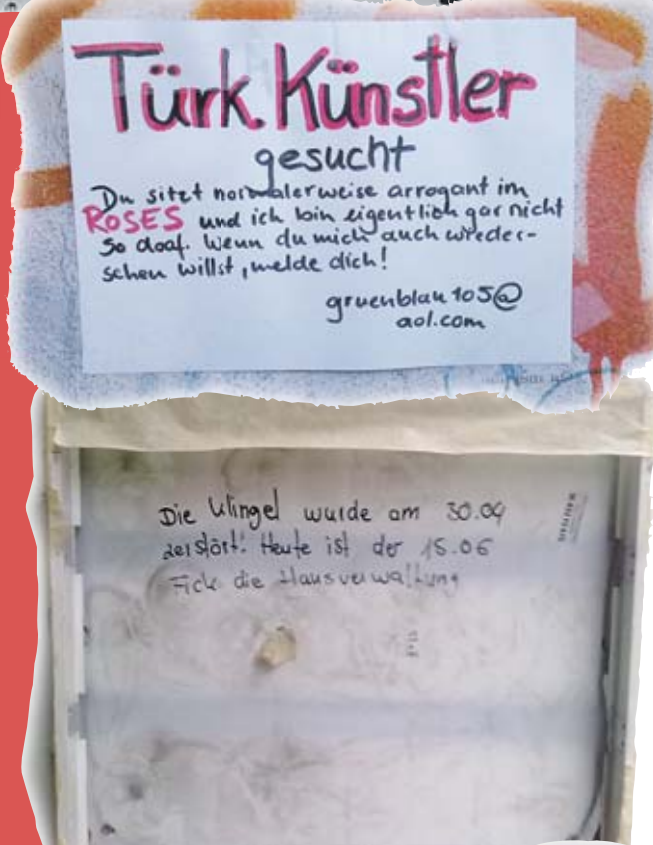 Türk. Künstler
gesucht
Du sitzt normalerweise arrogant im
ROSES und ich bin eigentlich gar nicht
so doof. Wenn du mich auch wieder-
sehen willst, melde dich!
gruenblau105@
aol.com
Die Klingel wurde am 30.04
zerstört! Heute ist der 15.06
Fick die Hausverwaltung